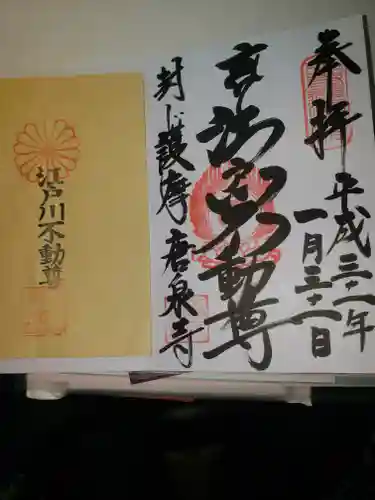 奉拝
平成三十一年
一月三十一日
動尊
封じ護摩 唐泉寺
江戸川不動尊